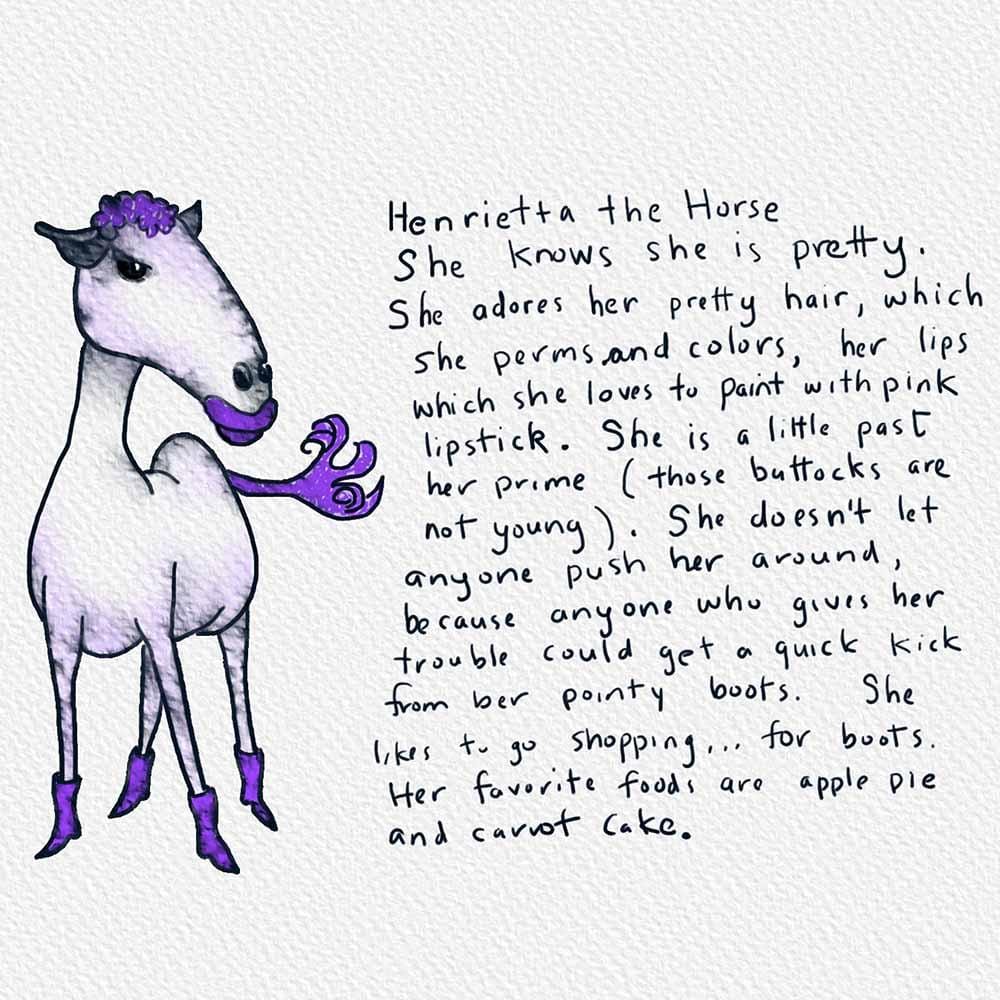 Henrietta the Horse
She knows she is pretty.
She adores her pretty hair, which
she perms and colors, her lips
which she loves to paint with pink
lipstick. She is a little past
her prime (those buttocks are
not young). She doesn't let
anyone push her around,
because anyone who gives her
trouble could get a quick kick
from her pointy boots. She
likes to go shopping... for boots.
Her favorite foods are apple pie
and carrot cake.